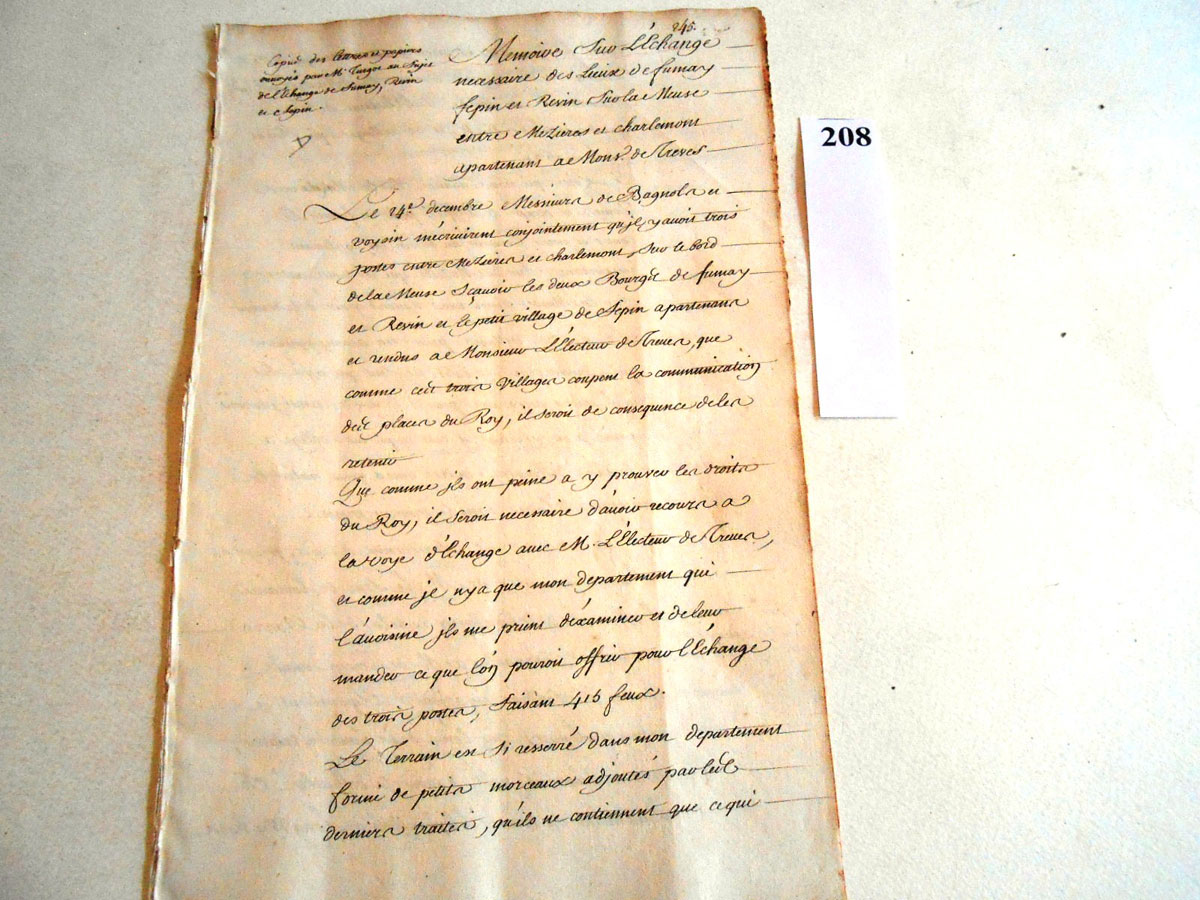 245.
Copie des lettres et papiers
envoyés par Mr. Turgot au Sujet
de l'Echange de Fumay, Revin
et Fepin.
Memoire Sur L'Échange
necessaire des Lieux de fumay
fepin et Revin Sur la Meuse
entre Mezieres et charlemont
apartenans a Monsr. de Treves
208
Le 24e. decembre Messieurs de Bagnols et
Voysin m'écrivirent conjointement qu'jl y avoit trois
postes entre Mezieres et charlemont, Sur le bord
de la Meuse Sçavoir les deux Bourgs de fumay
et Revin et le petit village de Fepin apartenans
et rendus a Monsieur L'Électeur de Treves, que
comme ces trois Villages coupent la communication
des places du Roy, il seroit de consequence de les
retenir
Que comme jls ont peine a y prouver les droits
du Roy, il seroit necessaire d'avoir recours a
la voye d'Échange avec M. L'Électeur de Treves,
et comme jl n'y a que mon departement qui
l'avoisine jls me prient d'éxaminer et de leur
mander ce que l'on pouroit offrir pour l'Échange
des trois postes, faisans 415 feux.
Le Terrain est si resserré dans mon departement
formé de petits morceaux adjoutés par les
derniers traités, qu'ils ne contiennent que ce qui